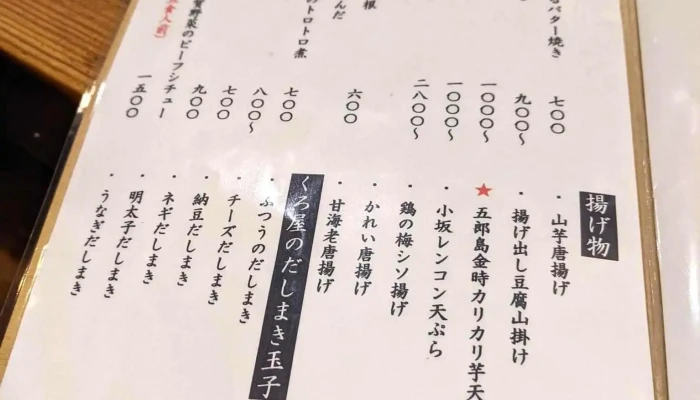 バター焼き
七〇〇
九〇〇〜
一〇〇〇〜
一〇〇〇〜
二八〇〇〜
根
六〇〇
んだ
のトロトロ煮
七〇〇
八〇〇〜
七〇〇
賀野菜のビーフシチュー
九〇〇
食入前)
一五〇〇
揚げ物
・山芋唐揚げ
・揚げ出し豆腐山掛け
★五郎島金時カリカリ芋天
・小坂レンコン天ぷら
・鶏の梅シソ揚げ
・かれい唐揚げ
・甘海老唐揚げ
くろ屋のだしまき玉子
・ふつうのだしまき
・チーズだしまき
・納豆だしまき
・ネギだしまき
・明太子だしまき
・うなぎだしまき